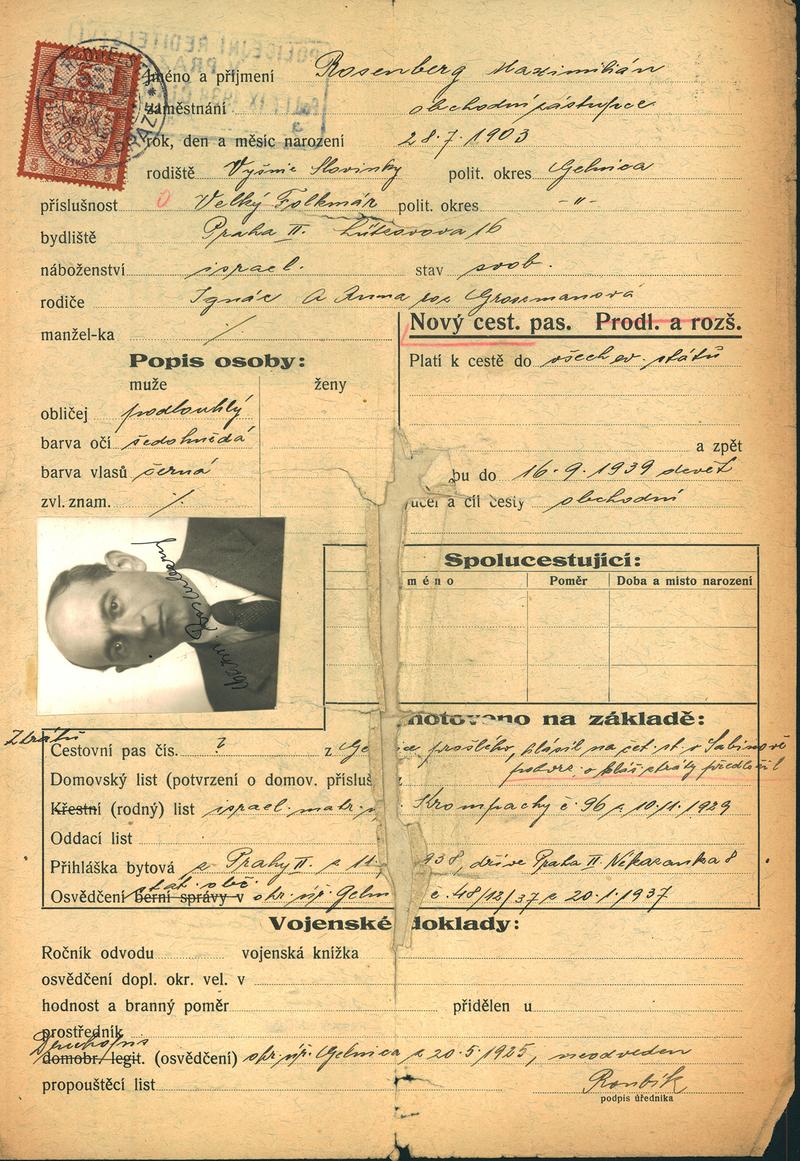 POLICEJNÍ ŘEDITELSTVÍ
Jméno a příjmení Rosenberg Maximilián
zaměstnání obchodní zástupce
rok, den a měsíc narození 28.7.1903
rodiště Vyšnie Slovinky polit. okres Gelnica
příslušnost 0 Velký Folkmár polit. okres -"-
bydliště Praha II. Lützovova 16
náboženství israel. stav svob.
rodiče Ignác a Anna roz Grossmanová
manžel-ka /
Nový cest. pas. Prodl. a rozš.
Popis osoby:
Platí k cestě do všech ev. států
muže ženy
obličej podlouhlý
barva očí šedohnědá
a zpět
barva vlasů černá
bu do 16.9.1939 devět
zvl. znam. /.
účel a cíl cesty obchodní
Spolucestující:
méno Poměr Doba a místo narození
hotoveno na základě:
Ztrátu
Cestovní pas čís. ? z prošlého, hlásil na čet. st. v Sabinově
potvrz. o hláš ztráty předložil
Domovský list (potvrzení o domov. příslu
Křestní (rodný) list israel. matr. Krompachy č 96 z 10.11.1929
Oddací list
Přihláška bytová z Prahy II. z 11 938, dříve Praha II Nekazanka 8
stát. obč.
Osvědčení berní správy v okr. úř. Gelni č. 48/12/37 z 20.1.1937
Vojenské doklady:
Ročník odvodu vojenská knížka
osvědčení dopl. okr. vel. v
hodnost a branný poměr přidělen u
prostředník
domobr. legit. (osvědčení) okr. úř. Gelnica z 20.5.1925, neodveden
propouštěcí list
podpis úředníka